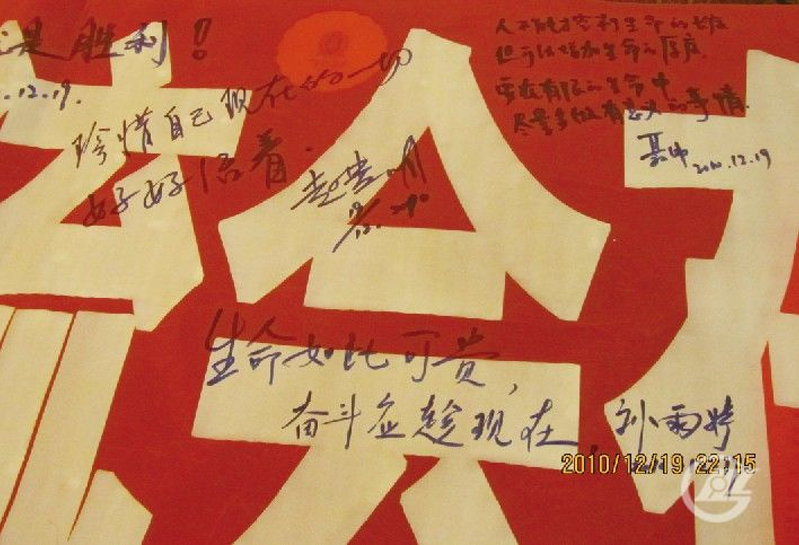 是胜利!
.12.19.
珍惜自己现在的一切
好好活着.
人不能控制生命的长度
但可以增加生命的厚度.
要在有限的生命中
尽量多做有意义的事情.
2010.12.19
生命如此可贵,
奋斗应趁现在.
刘雨婷
2010/12/19 22:15